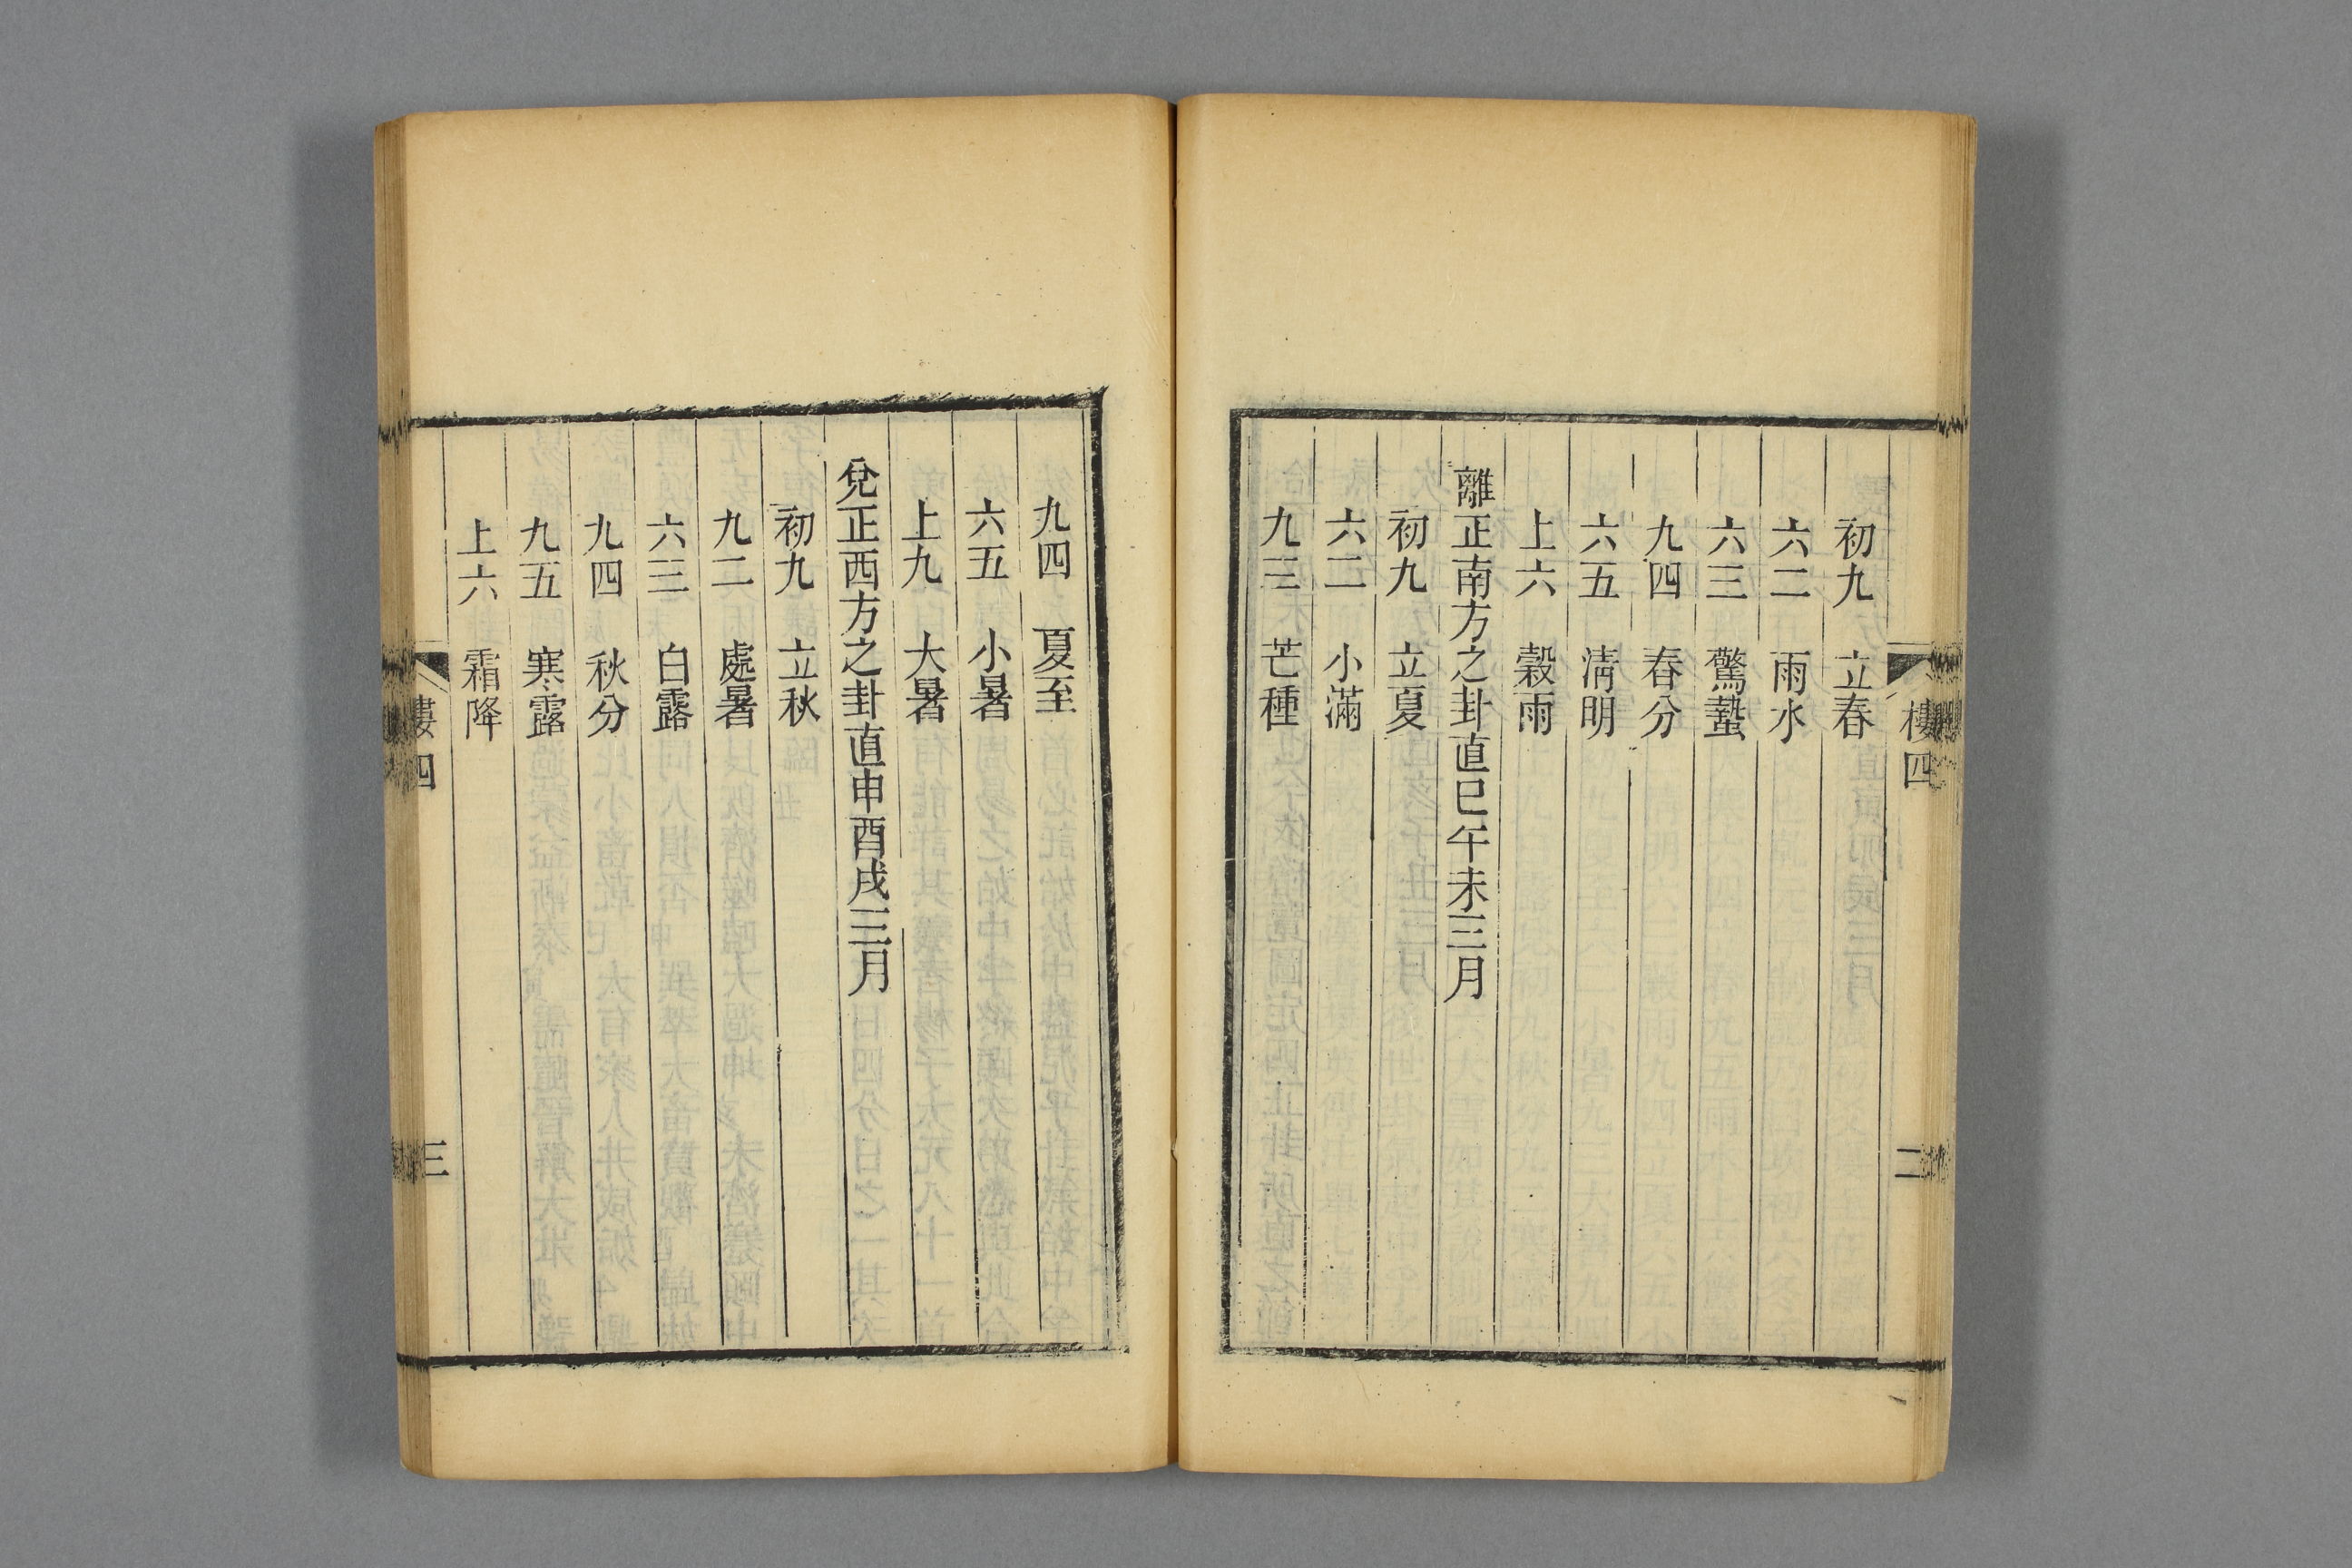 初九　立春
六二　雨水
六三　驚蟄
九四　春分
六五　淸明
上六　穀雨
離正南方之卦直巳午未三月
初九　立夏
六二　小滿
九三　芒種
樓四
二
九四　夏至
六五　小暑
上九　大暑
兌正西方之卦直申酉戌三月
初九　立秋
九二　處暑
六三　白露
九四　秋分
九五　寒露
上六　霜降
樓四
三